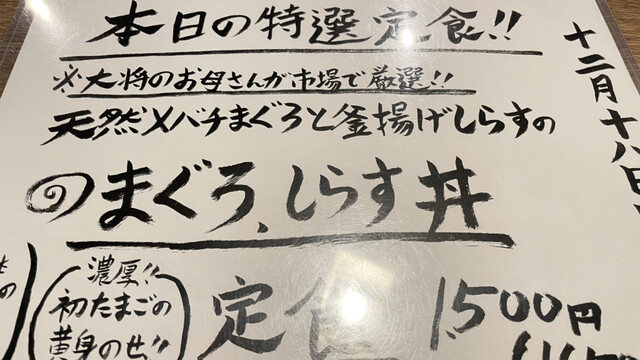 本日の特選定食!!
十二月十八日
※大将のお母さんが市場で厳選!!
天然メバチまぐろと釜揚げしらすの
のまぐろ、しらす丼
(濃厚!!
初たまごの
黄身のせ!!)
定食 1500円